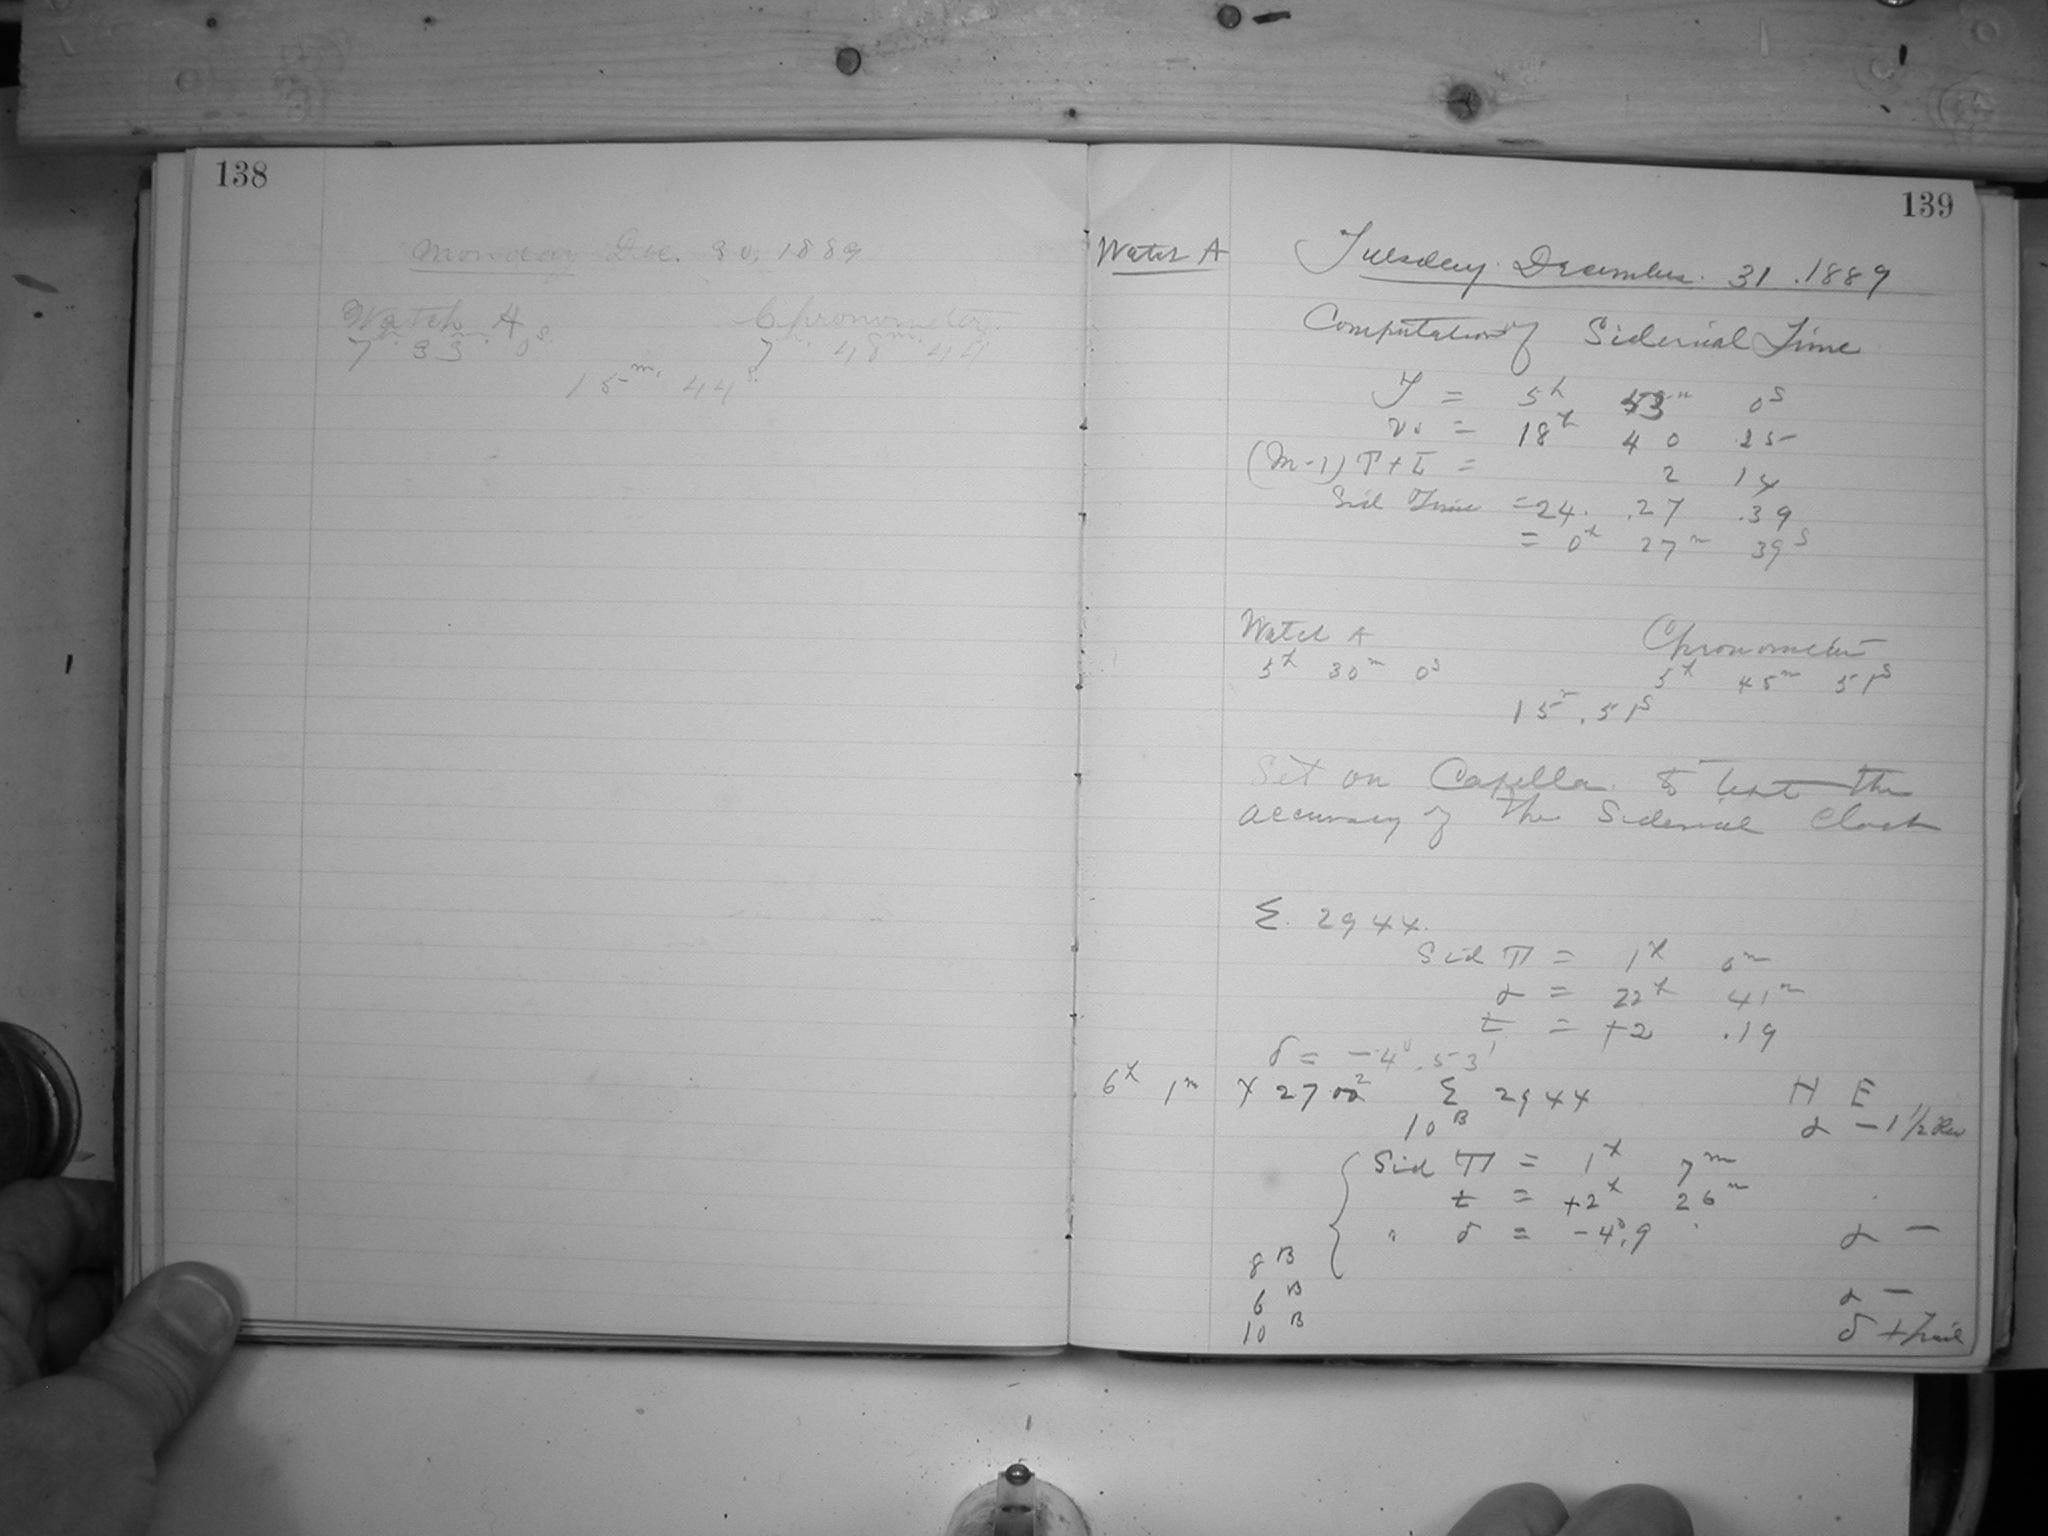 138
Monday Dec. 30, 1889
Watch A Chronometer
7h 33m 0s. 7h 48m 44
15m. 44s.
139
Watch A Tuesday December. 31. 1889
Computation of Sidereal Time
T = 5h 45m 0s
= 18h 40 25
(M-1) T + L = 2 14
Sid Time = 24. .27 .39
= 0h 27m 39s
Watch A Chronometer
5h 30m 0s 5h 45m 51s
15m. 51s
Set on Capella to test the
accuracy of the Sidereal Clock
Σ. 2944.
Sid T = 1h 0m
α = 22h 41m
t = +2 .19
δ = -4°.53'
6h 1m Σ 2944 H E
10B α - 1 1/2 Rev
Sid T = 1h 7m
t = +2h 26m
" δ = -4°.9 α -
8B
6B α -
10B δ +